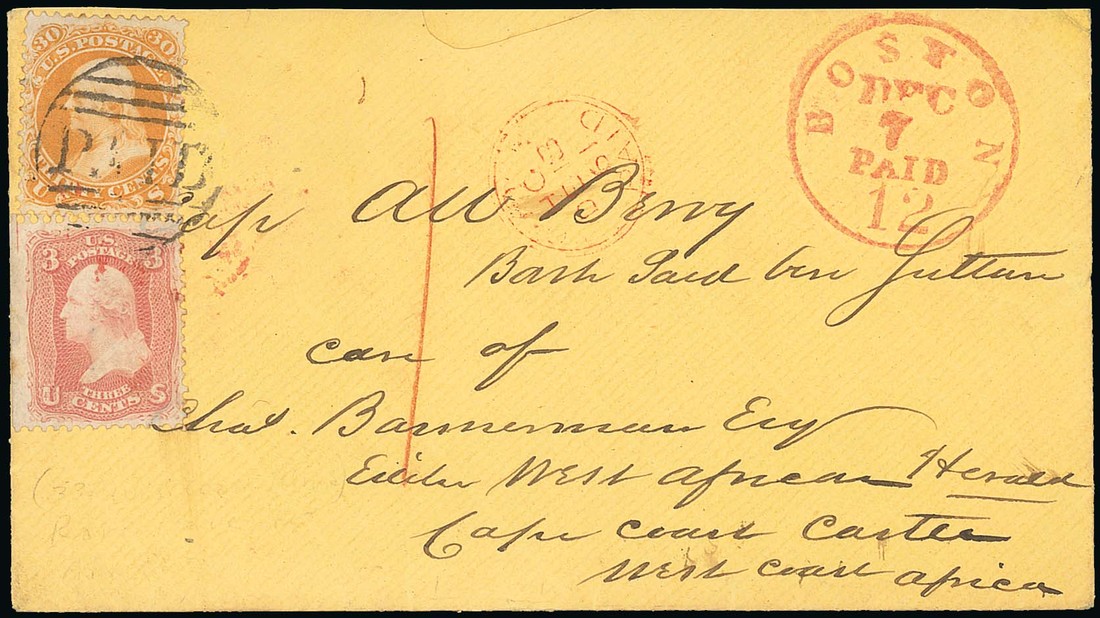 30 30
U.S. POSTAGE
PAID
U S
3 U.S. POSTAGE 3
U THREE CENTS S
BOSTON
DEC
7
PAID
12
PAID
Cap All Berry
Bark Said bin Sultan
care of
Chas. Bannerman Esq
Editor West African Herald
Cape Coast Castle
West Coast Africa